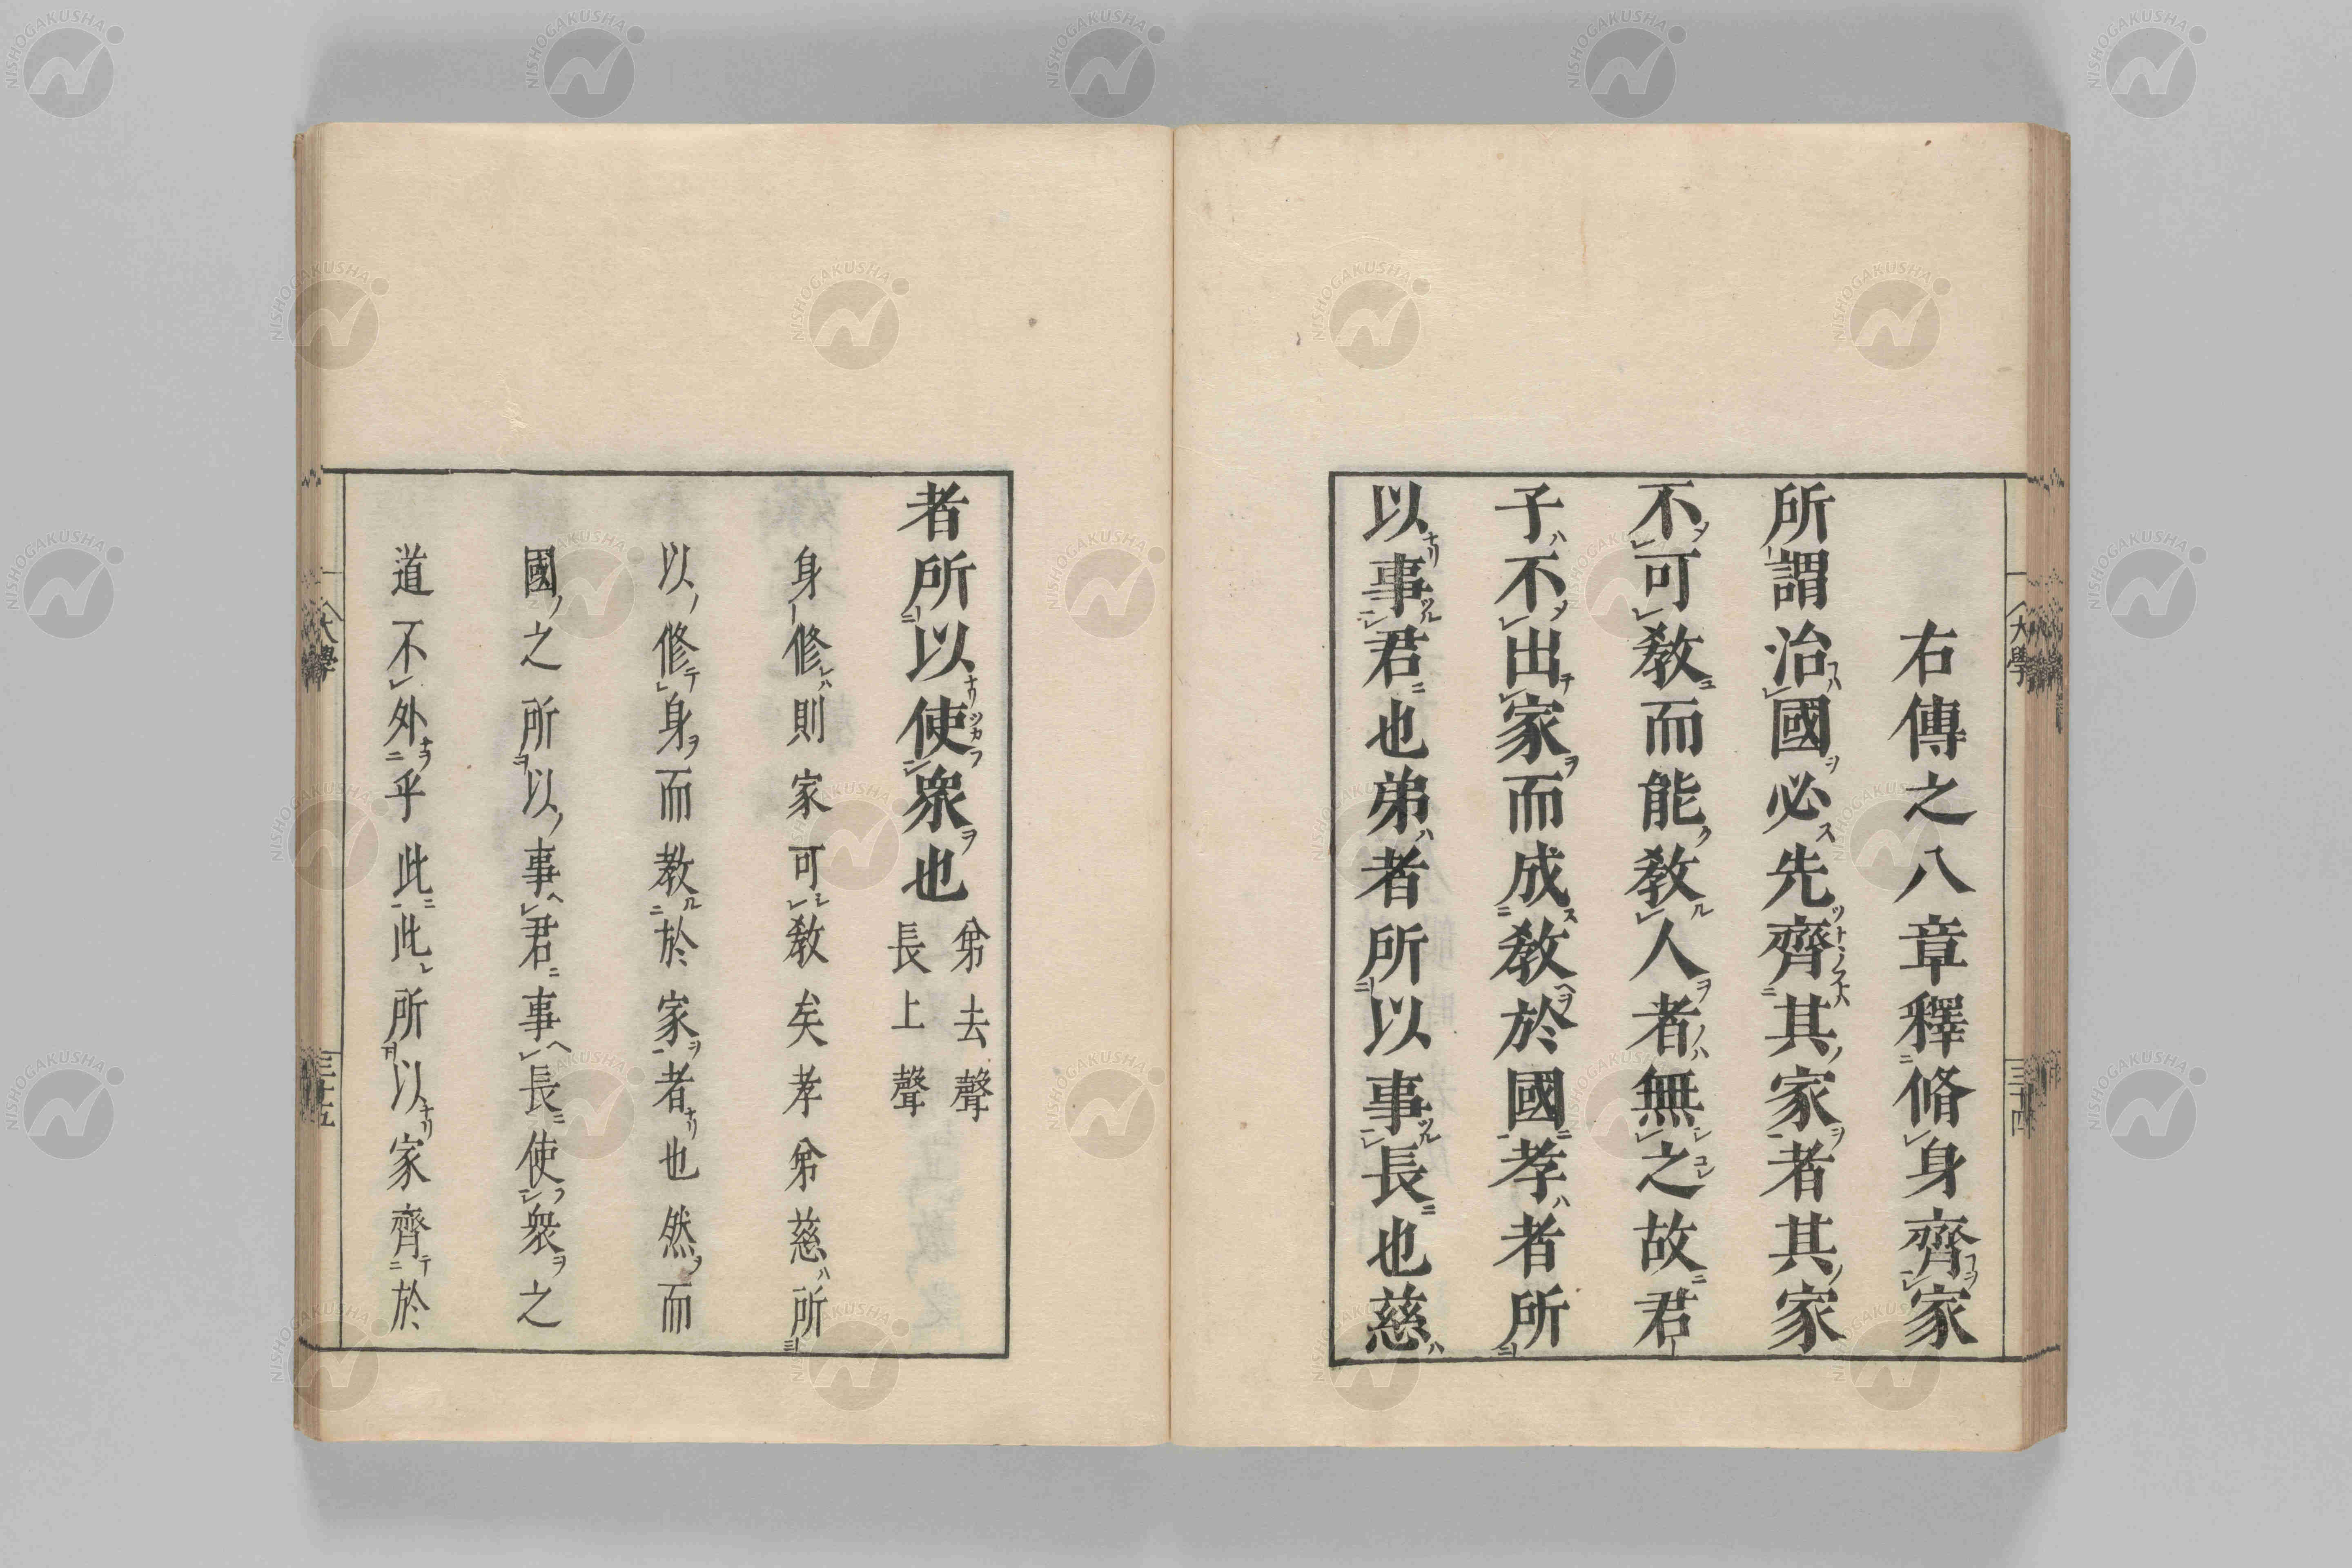 右傳之八章釋脩身齊家
所謂治國必先齊其家者其家
不可教而能教人者無之故君
子不出家而成教於國孝者所
以事君也弟者所以事長也慈
大學
三十四
者所以使衆也
弟去聲
長上聲
身修則家可教矣孝弟慈所
以修身而教於家者也然而
國之所以事君事長使衆之
道不外乎此此所以家齊於
大學
三十五
NISHOGAKUSHA